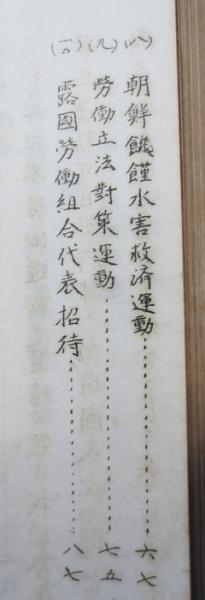 (八)朝鮮饑饉水害救済運動……………六七
(九)勞働立法對策運動……………七五
(一〇)露國勞働組合代表招待……………八七